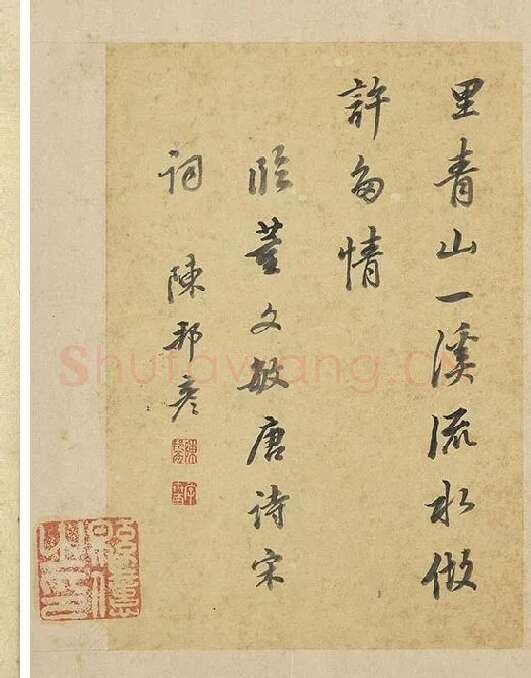 里青山一溪流水做
許多情
臨董文敏唐詩宋
詞 陳邦彥